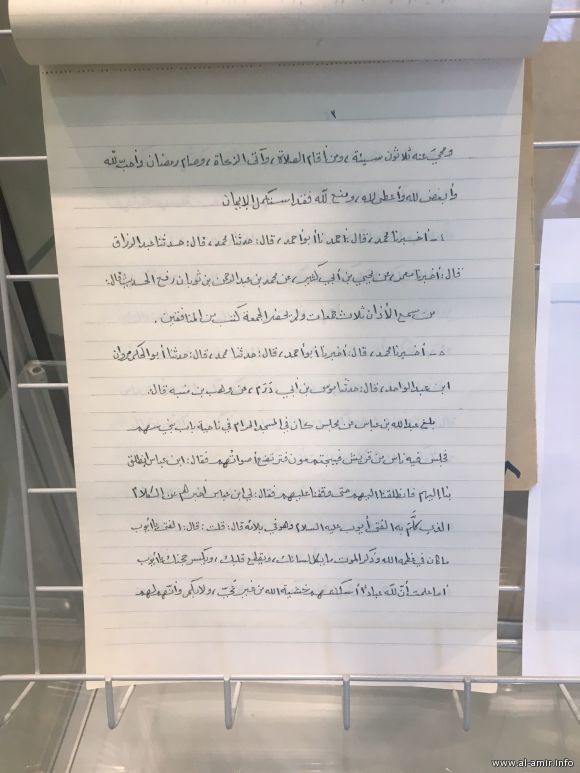 ٢
ومحي عنه ثلاثون سيئة، ومن أقام الصلاة، وآتى الزكاة، وصام رمضان وأحب لله
وأبغض لله وأعطى لله، ومنع لله فقد استكمل الإيمان
أخبرنا محمد، قال: نا أبو أحمد، قال: حدثنا محمد، قال: حدثنا عبد الرزاق
قال: أخبرنا معمر، عن يحيى بن أبي كثير، عن محمد بن عبد الرحمن بن ثوبان رفع الحديث قال:
من سمع الأذان ثلاث جمعات ولم يحضر الجمعة كتب من المنافقين.
٥- أخبرنا محمد، قال: أخبرنا أبو أحمد، قال: حدثنا محمد، قال: حدثنا أبو الحكم مروان
ابن عبد الواحد، قال: حدثنا موسى بن أبي درم، عن وهب بن منبه قال:
بلغ عبد الله بن عباس عن مجلس كان في المسجد الحرام في ناحية باب بني سهم
يجلس فيه ناس من قريش فيختصمون فترتفع أصواتهم فقال: ابن عباس انطلق
بنا إليهم فانطلقنا إليهم حتى وقفنا عليهم فقال: لي ابن عباس أخبرهم عن الكلام
الذي كلم به الفتى أيوب عليه السلام وهو في بلائه قال: قلت: قال: الفتى يا أيوب
ما كان في عظمة الله وذكر الموت ما يكل لسانك، ويقطع قلبك، ويكسر حجتك يا أيوب
أما علمت أن لله عبادا أسكتتهم خشية الله من غير عي، ولا بكم وأنهم لهم
www.al-amir.info